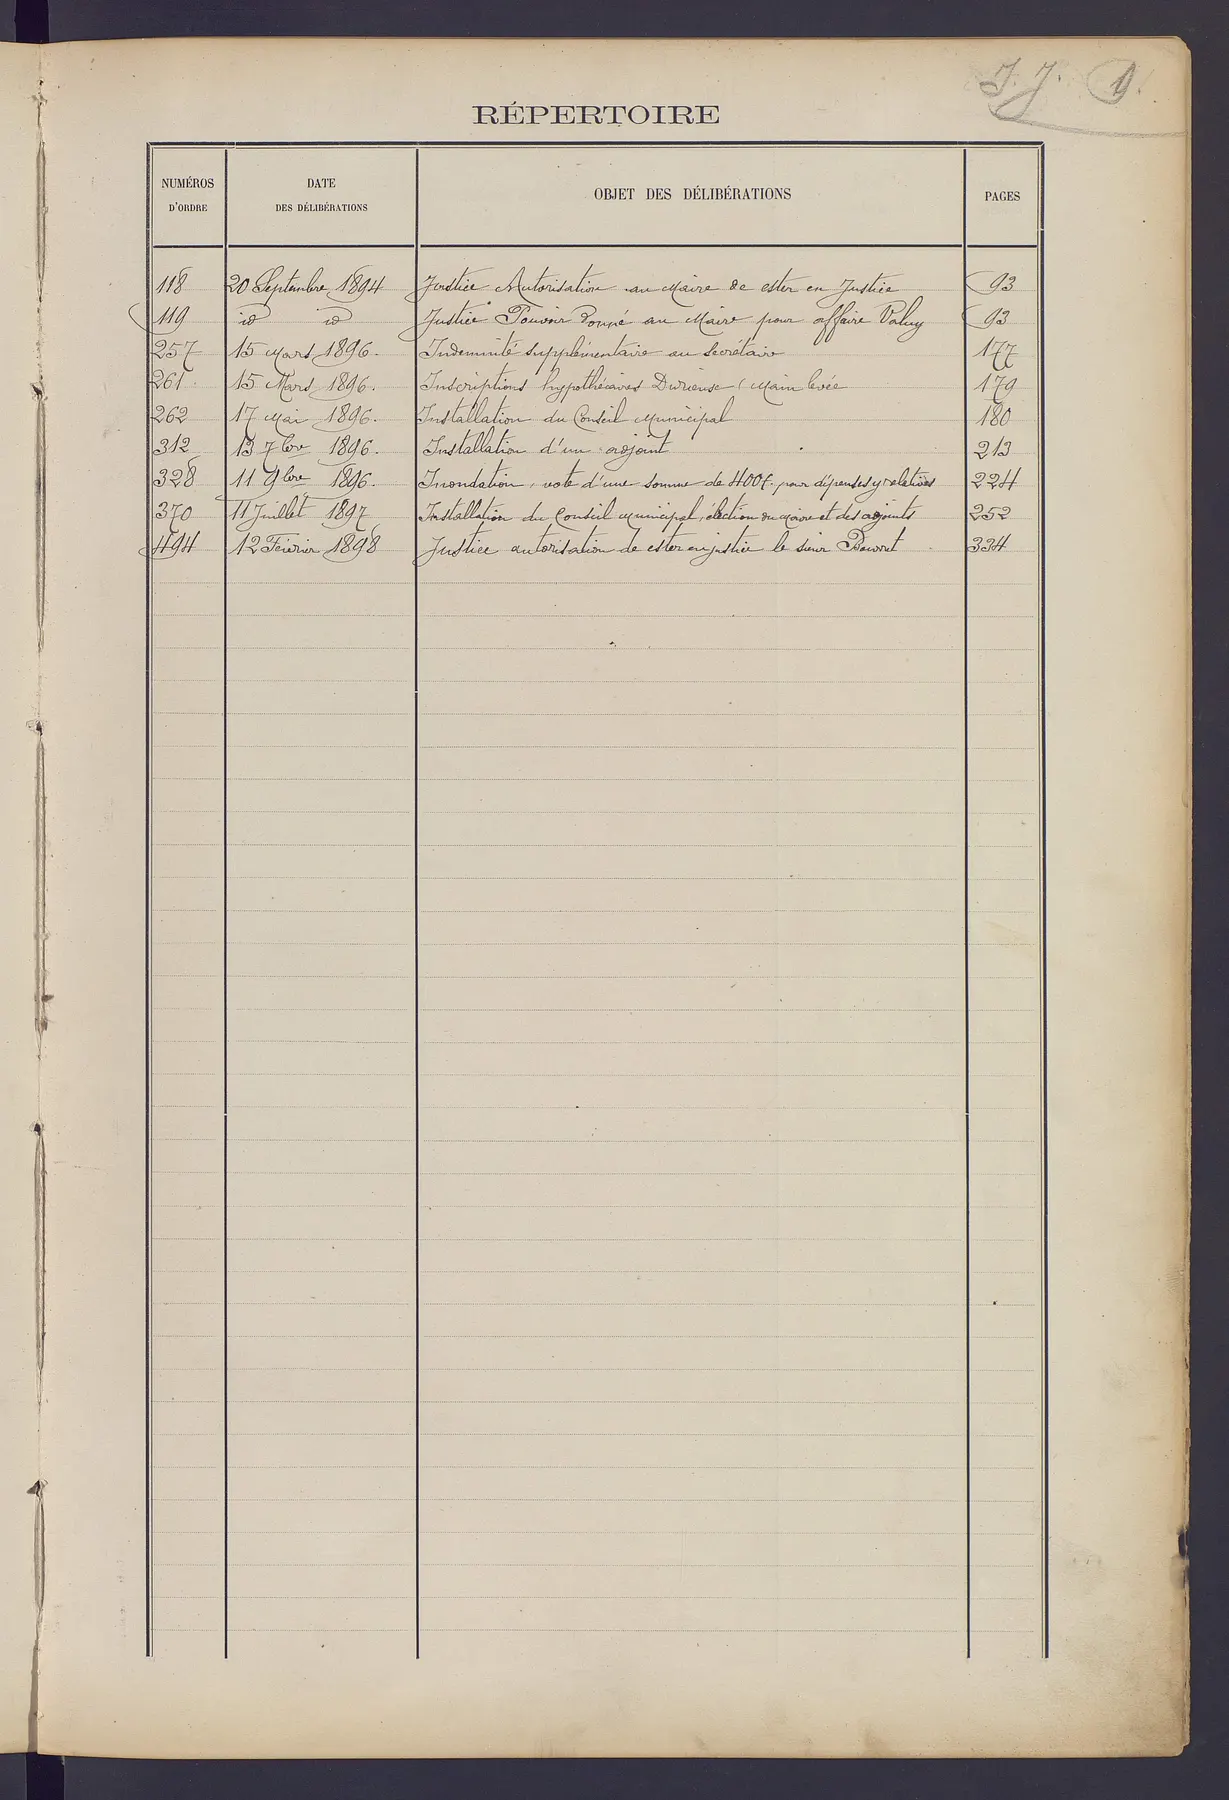 I. J. 9.
RÉPERTOIRE
NUMÉROS D'ORDRE | DATE DES DÉLIBÉRATIONS | OBJET DES DÉLIBÉRATIONS | PAGES
118 | 20 Septembre 1894 | Justice Autorisation au Maire de ester en Justice | 93
119 | id id | Justice Pouvoir donné au Maire pour affaire | 93
257 | 15 Mars 1896. | Indemnité supplémentaire au Secrétaire | 177
261 | 15 Mars 1896. | Inscriptions hypothécaires Main levée | 179
262 | 17 Mai 1896. | Installation du Conseil Municipal | 180
312 | 13 7bre 1896. | Installation d'un adjoint | 213
328 | 11 9bre 1896. | Inondation, vote d'une somme de 400f. pour dépenses y relatives | 224
370 | 11 Juillet 1897 | Installation du Conseil Municipal, élection du Maire et des adjoints | 252
494 | 12 Février 1898 | Justice autorisation de ester en justice le sieur | 334